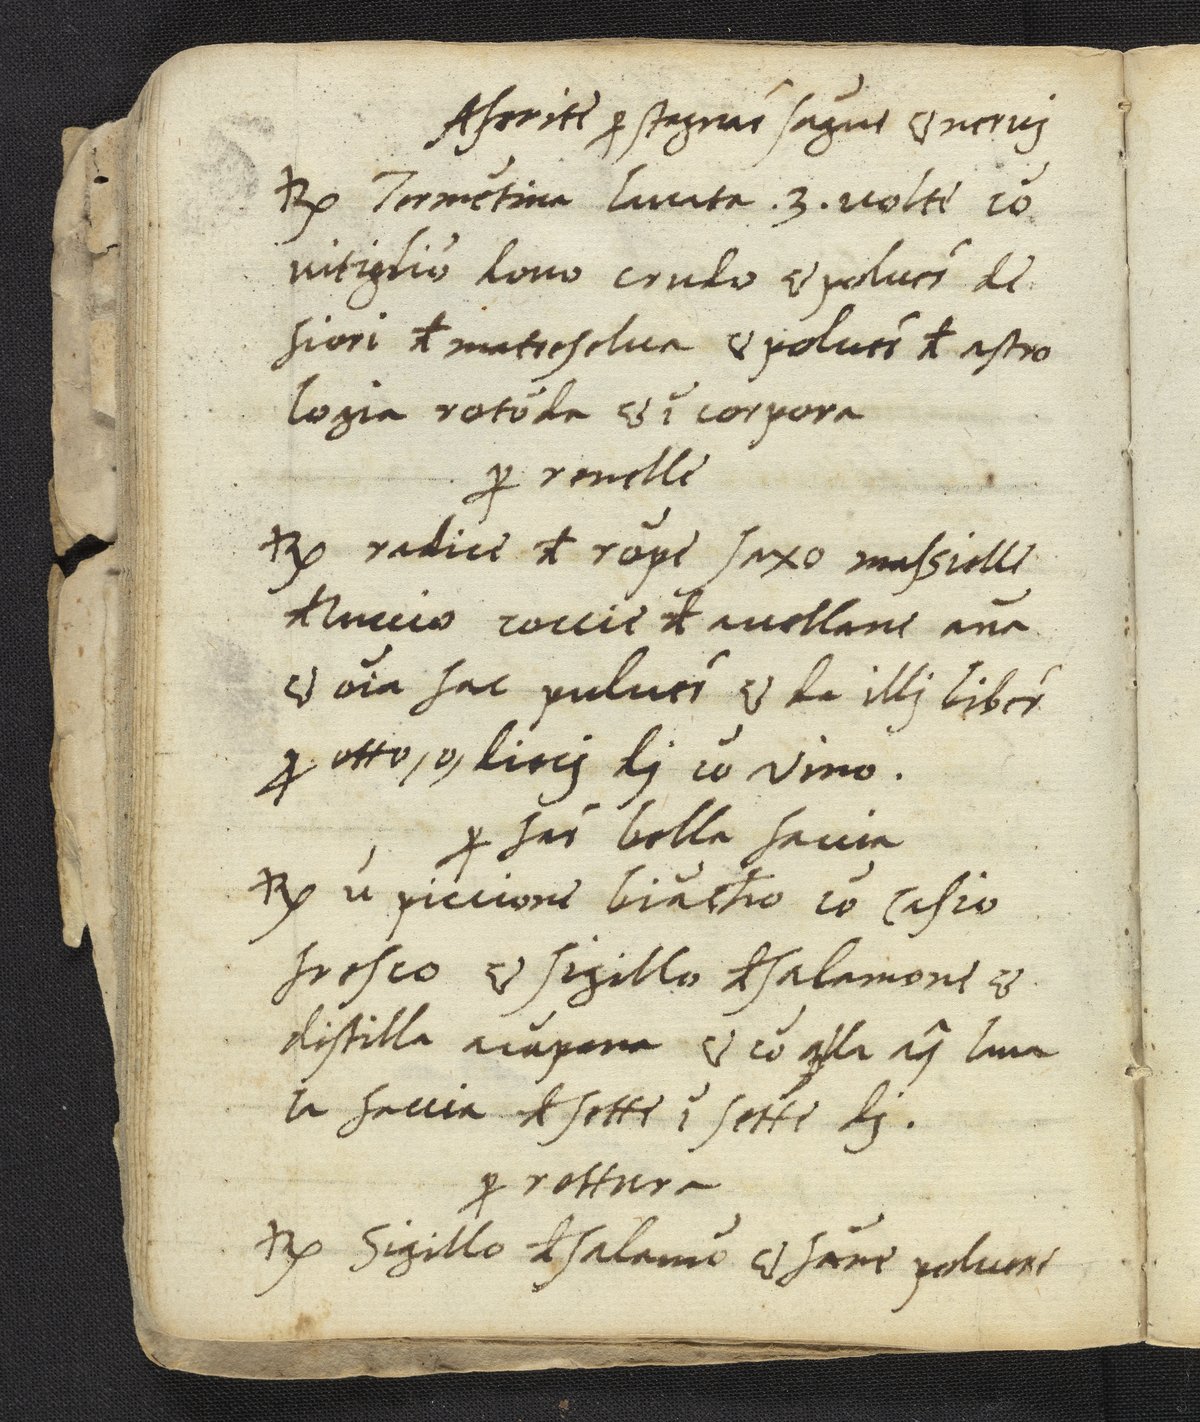 A feritē ꝑ stagnar̄ sāgue & nervij
℞ Termētina lavata .3. volte cō
vitiglio d ovo crudo & polver̄ de
fiori đ matreselva & polver̄ đ astro
logia rotōda & ī corpora
ꝑ renelle
℞ radice đ rōpe saxo massielle
đ luccio coccie đ avellane ana
& oīa fac pulver̄ & da illj biber̄
ꝑ otto, o, diecij dij cō vino.
ꝑ far̄ bella faccia
℞ ū piccione biācho cō casio
fresco & sigillo đ salamone &
distilla a cāpana & cō q̄lla aq̄ lava
la faccia đ sette ī sette dij.
ꝑ rottura
℞ Sigillo đ salamō & fāne polvere